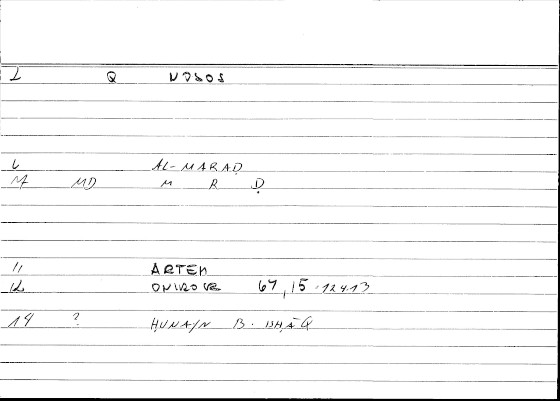 1 Q NOSOS
6 AL-MARAḌ
M MD M R Ḍ
11 ARTEM
12 ONIROCR 67,15-124.13
14 ? ḤUNAYN B. ISḤĀQ